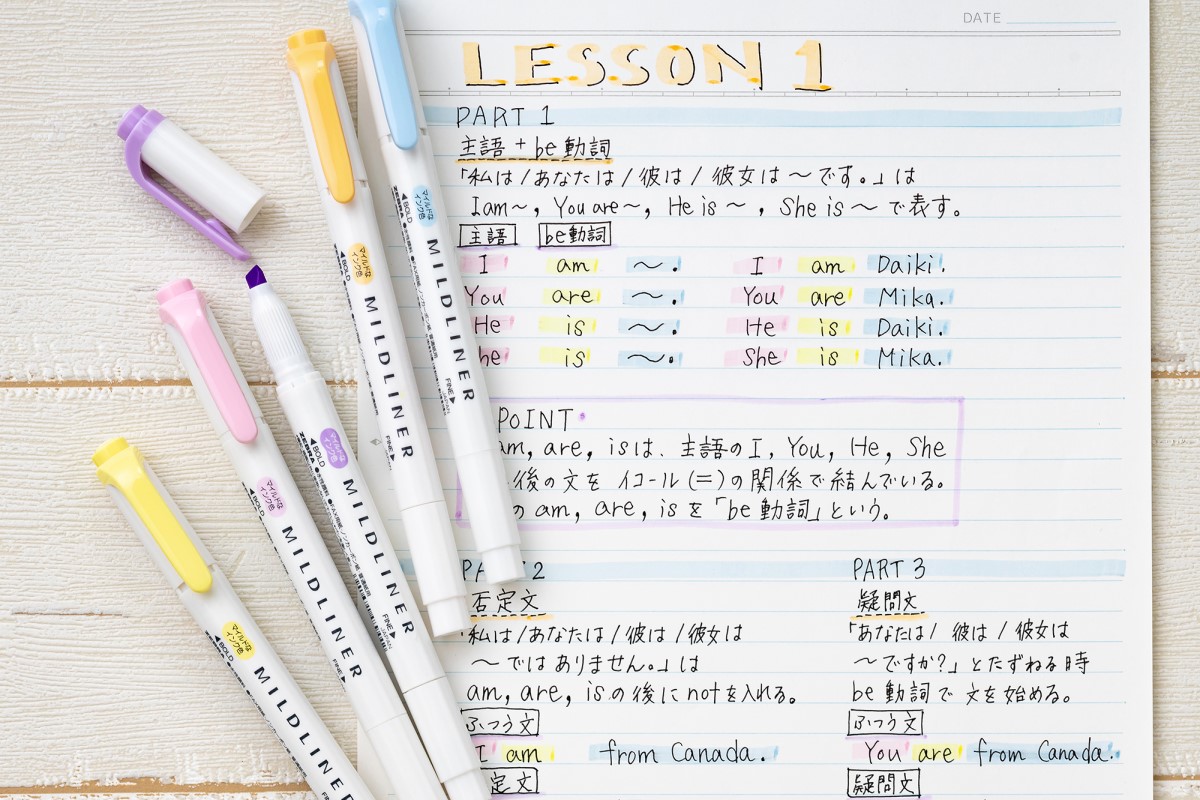 DATE
LESSON 1
PART 1
主語 + be 動詞
「私は / あなたは / 彼は / 彼女は 〜 です。」は
I am〜, You are〜, He is 〜 , She is 〜 で表す。
主語 be動詞
I am 〜. I am Daiki.
You are 〜. You are Mika.
He is 〜. He is Daiki.
he is 〜. She is Mika.
POINT
am, are, isは、主語の I, You, He, She
後の文を イコール (=)の関係で結んでいる。
の am, are, isを「be 動詞」という。
PA 2
否定文
私は/あなたは/彼は/彼女は
〜 ではありません。」は
am, are, isの後に notを入れる。
ふつう文
I am from Canada.
定文
PART 3
疑問文
「あなたは/ 彼は / 彼女は
〜ですか?」とたずねる時
be 動詞で 文を始める。
ふつう文
You are from Canada.
疑問文
マイルドなインク色
BOLD
MILDLINER
FINE
マイルドなインク色
BOLD
MILDLINER
FINE
マイルドなインク色
BOLD
MILDLINER
FINE
マイルドなインク色
BOLD
MILDLINER
FINE
マイルドなインク色
BOLD
MILDLINER